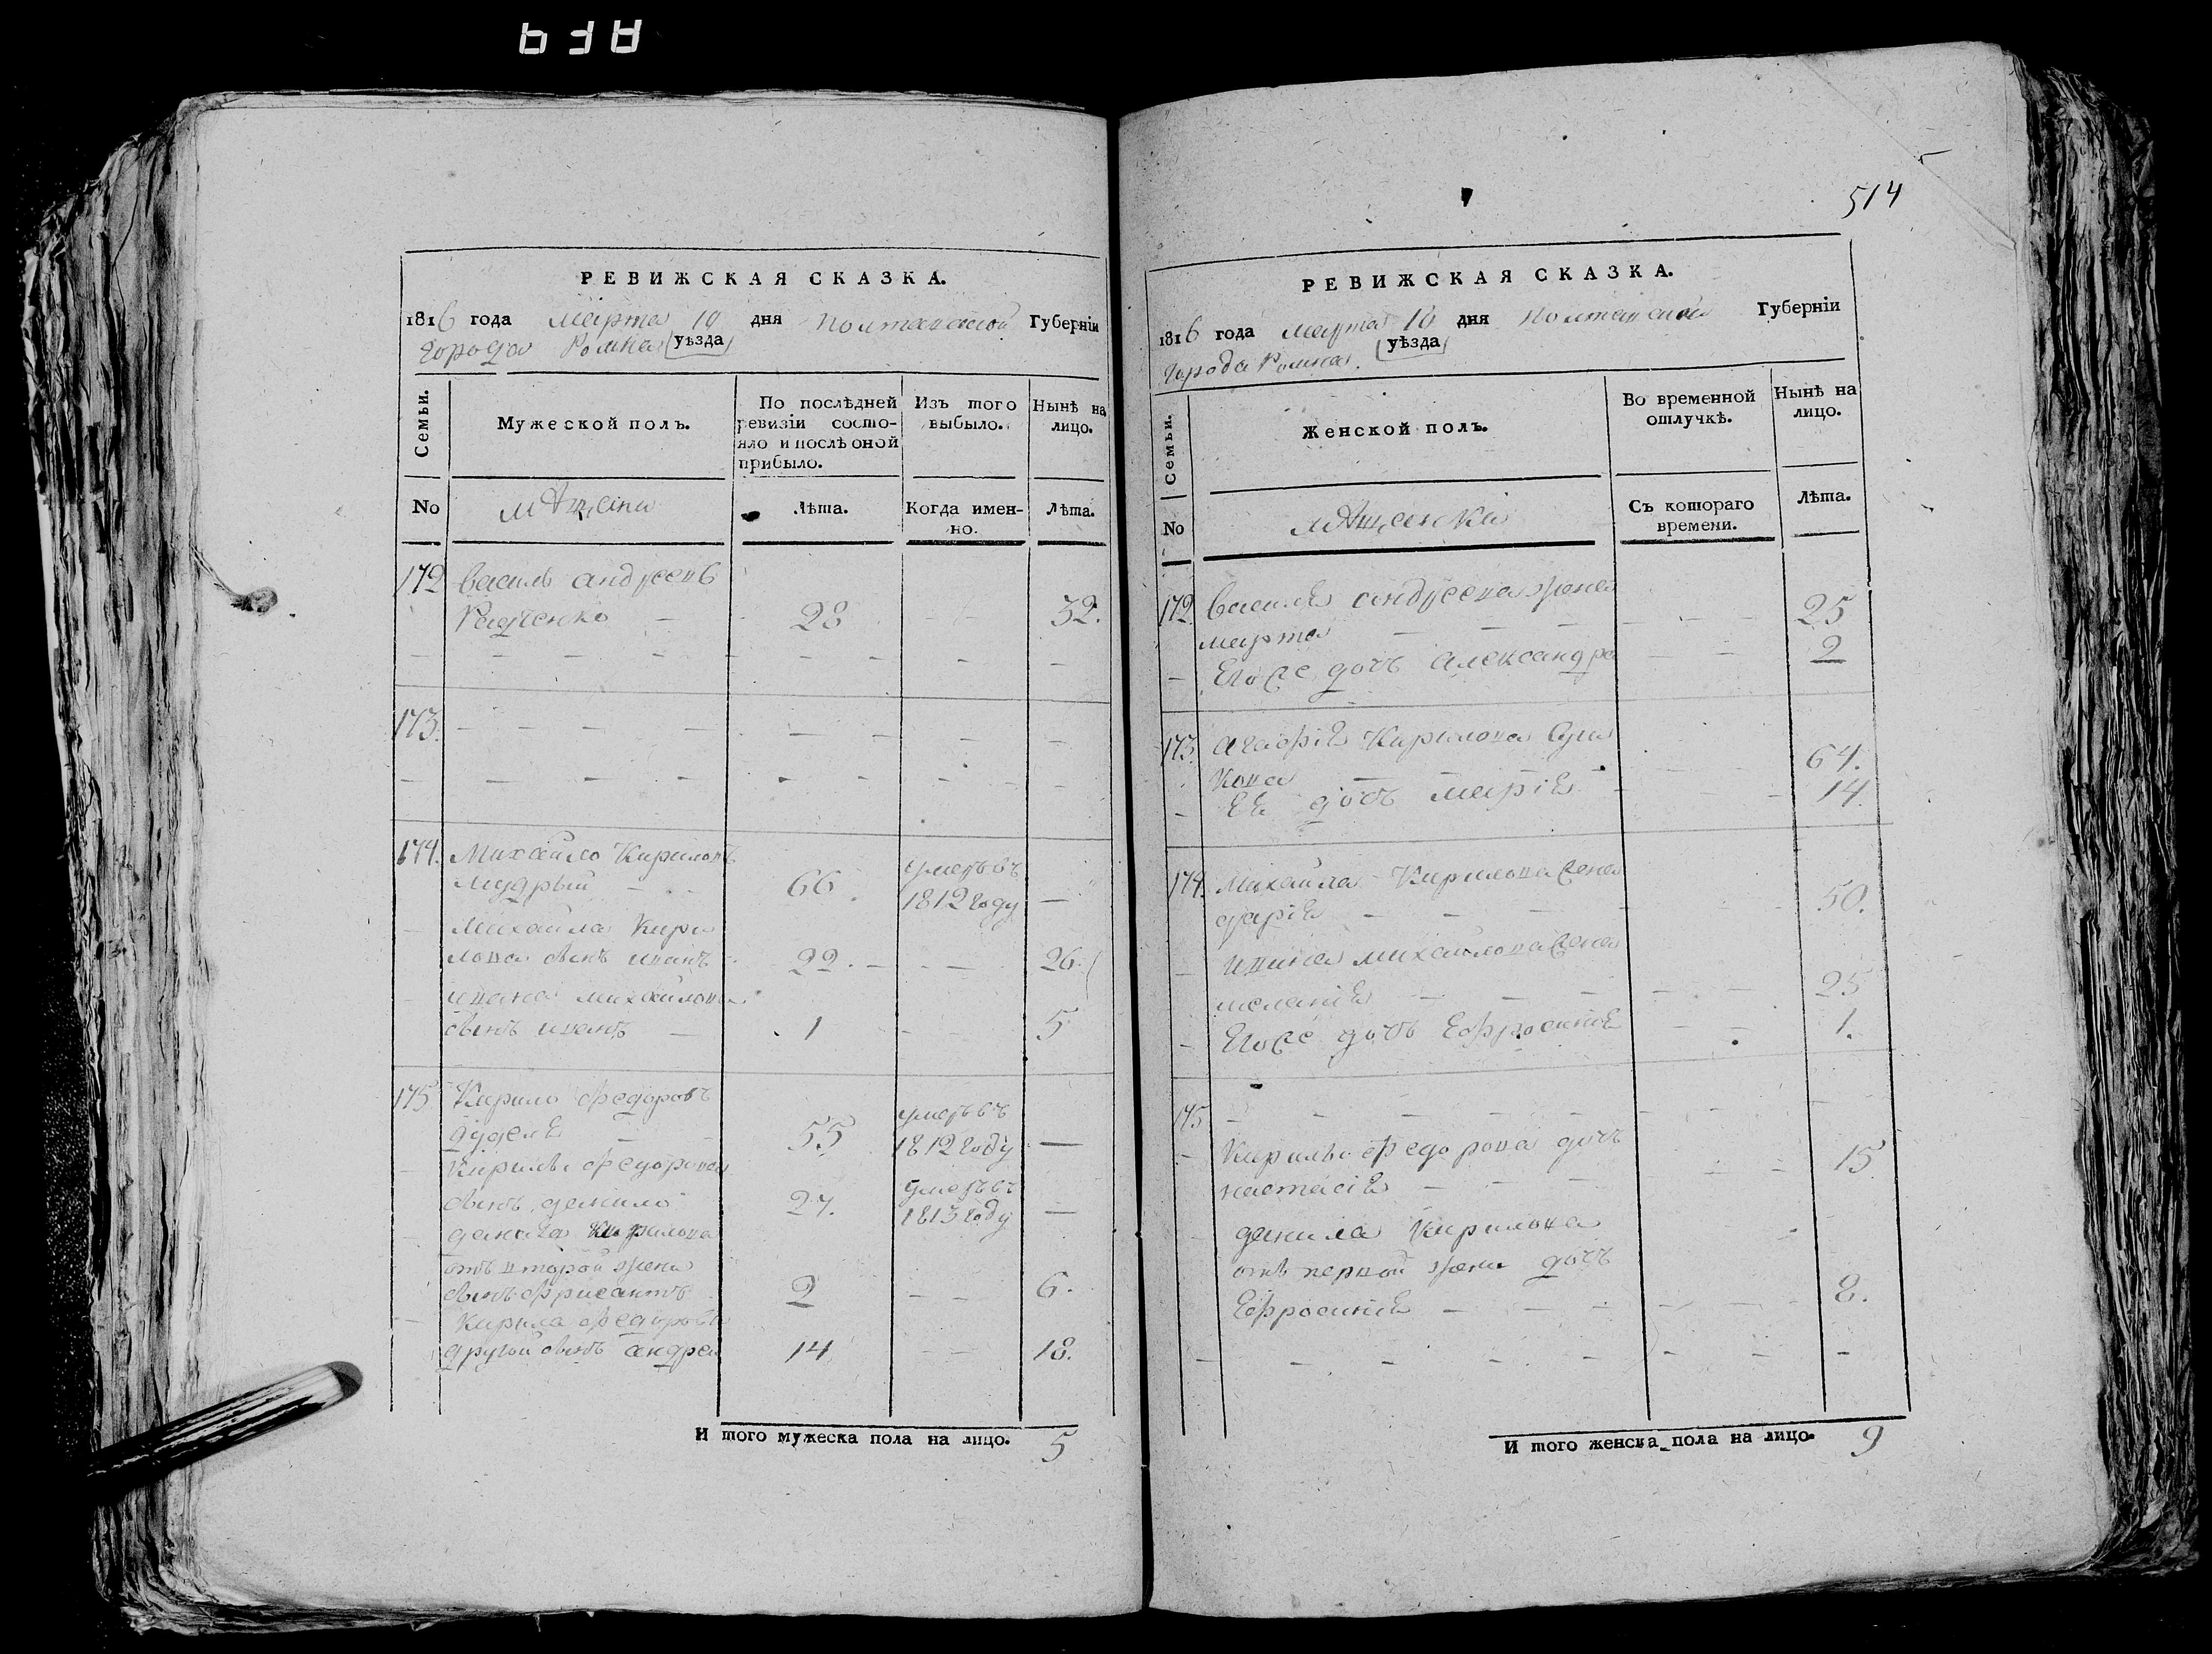 514
РЕВИЖСКАЯ СКАЗКА.
1816 года марта 10 дня Полтавской Губерніи
города Ромна уѣзда
Семьи.
Мужеской полъ.
По послѣдней ревизіи состояло и послѣ оной прибыло.
Изъ того выбыло.
Нынѣ на лицо.
No
мѣщани
Лѣта.
Когда именно.
Лѣта.
172 василь андреевъ
Радченко 28 32.
173.
174. Михайло Кириловъ
мудрый 66 умеръ въ 1812 году
Михайла Кири
лова сынъ иванъ 22. 26.
ивана михайлова
сынъ иванъ 1 5
175 Кирило Федоровъ
дудка 55 умеръ въ 1812 году
Кирилы Федорова
сынъ данило 27. умеръ въ 1813 году
данила Кирилова
отъ второй жены
сынъ 2 6.
Кирила Федорова
другой сынъ андрей 14 18.
И того мужеска пола на лицо. 5
РЕВИЖСКАЯ СКАЗКА.
1816 года марта 10 дня Полтавской Губерніи
города Ромна. уѣзда
Семьи.
Женской полъ.
Во временной отлучкѣ.
Нынѣ на лицо.
No
мѣщанка
Съ котораго времени.
Лѣта.
172 василя андреева жена
марта 25
Его же дочь александра 2
173. агафія Кирилова
кова 64.
Ея дочь марія 14.
174 Михайла Кирилова жена
дарія 50.
ивана михайлова жена
меланія 25
Его же дочь Ефросинія 1.
175
Кирилы Федорова дочь
настасія 15
данила Кирилова
отъ первой жены дочь
Ефросинія 8.
И того женска пола на лицо. 9